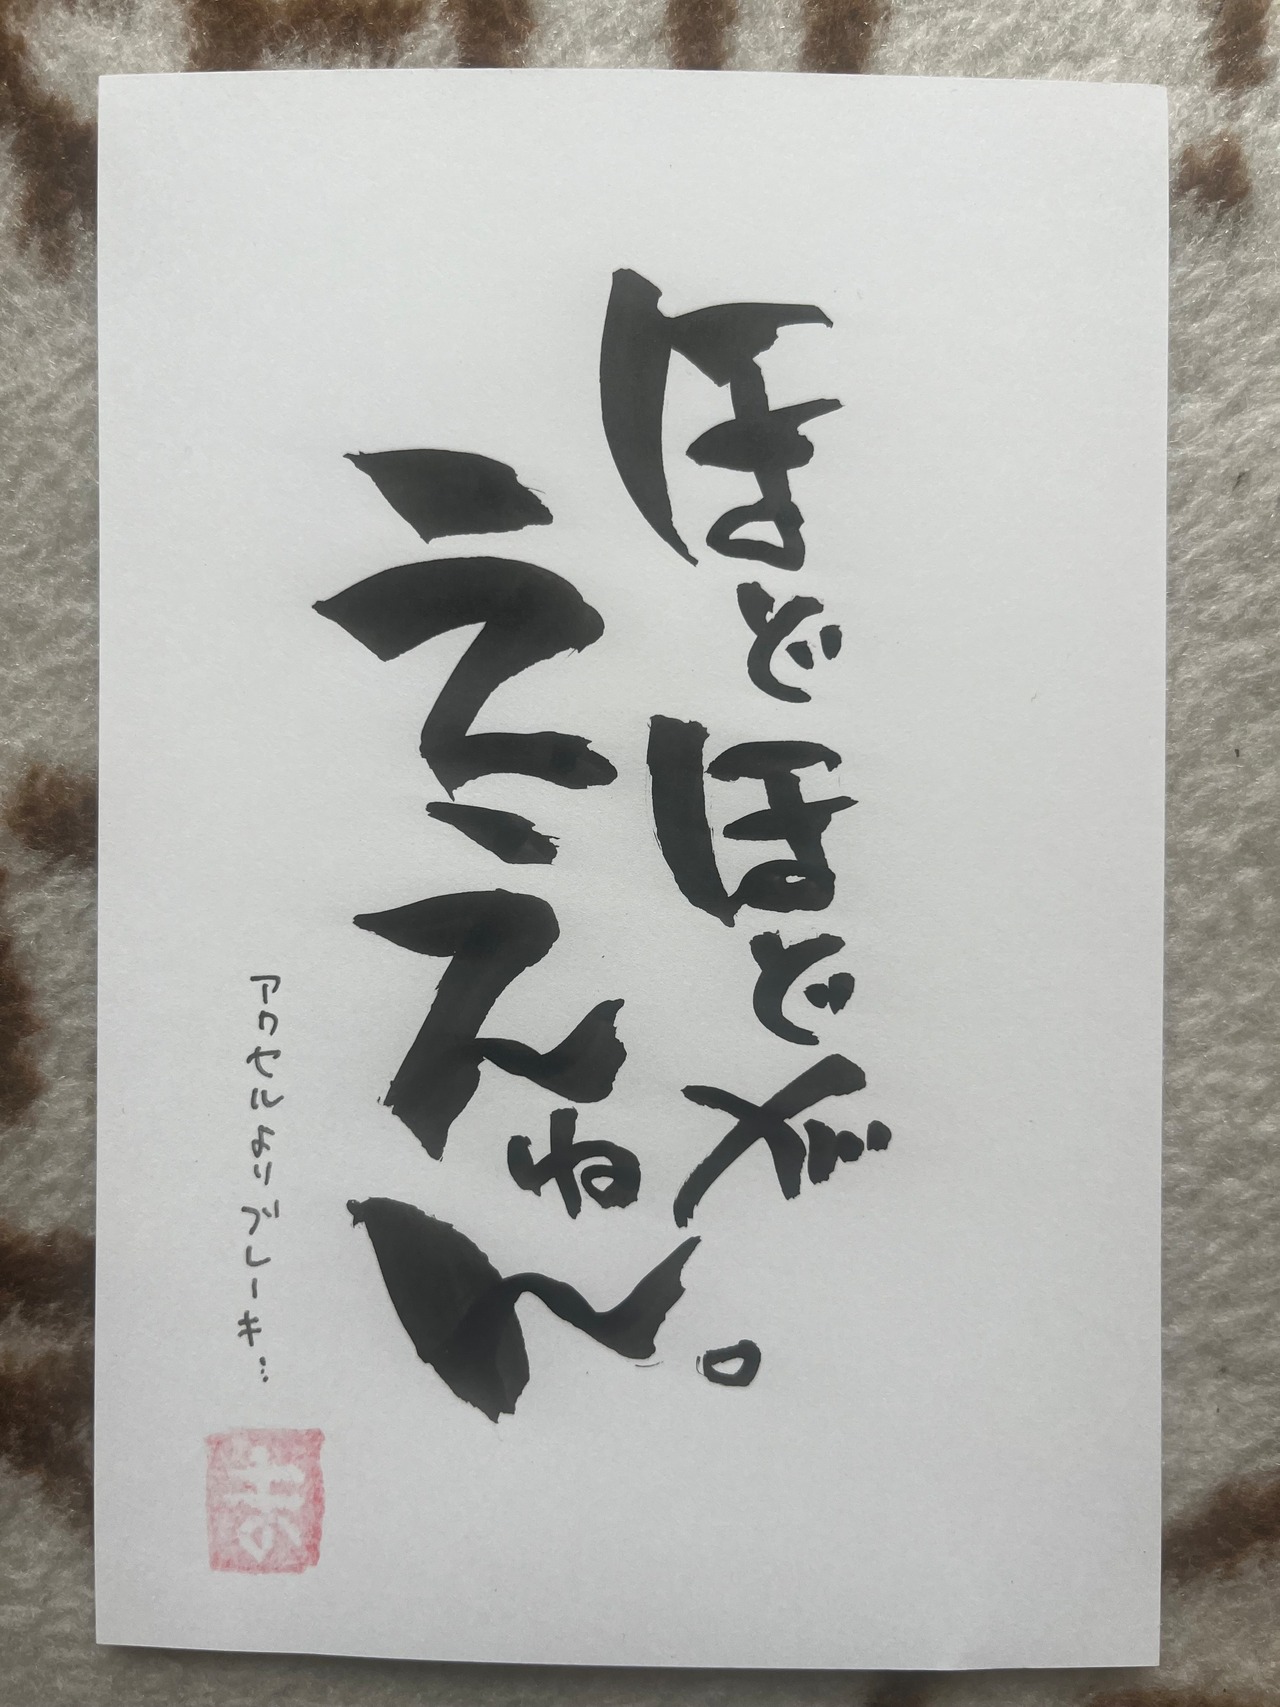 ほどほどが
ええねん。
アクセルよりブレーキ…